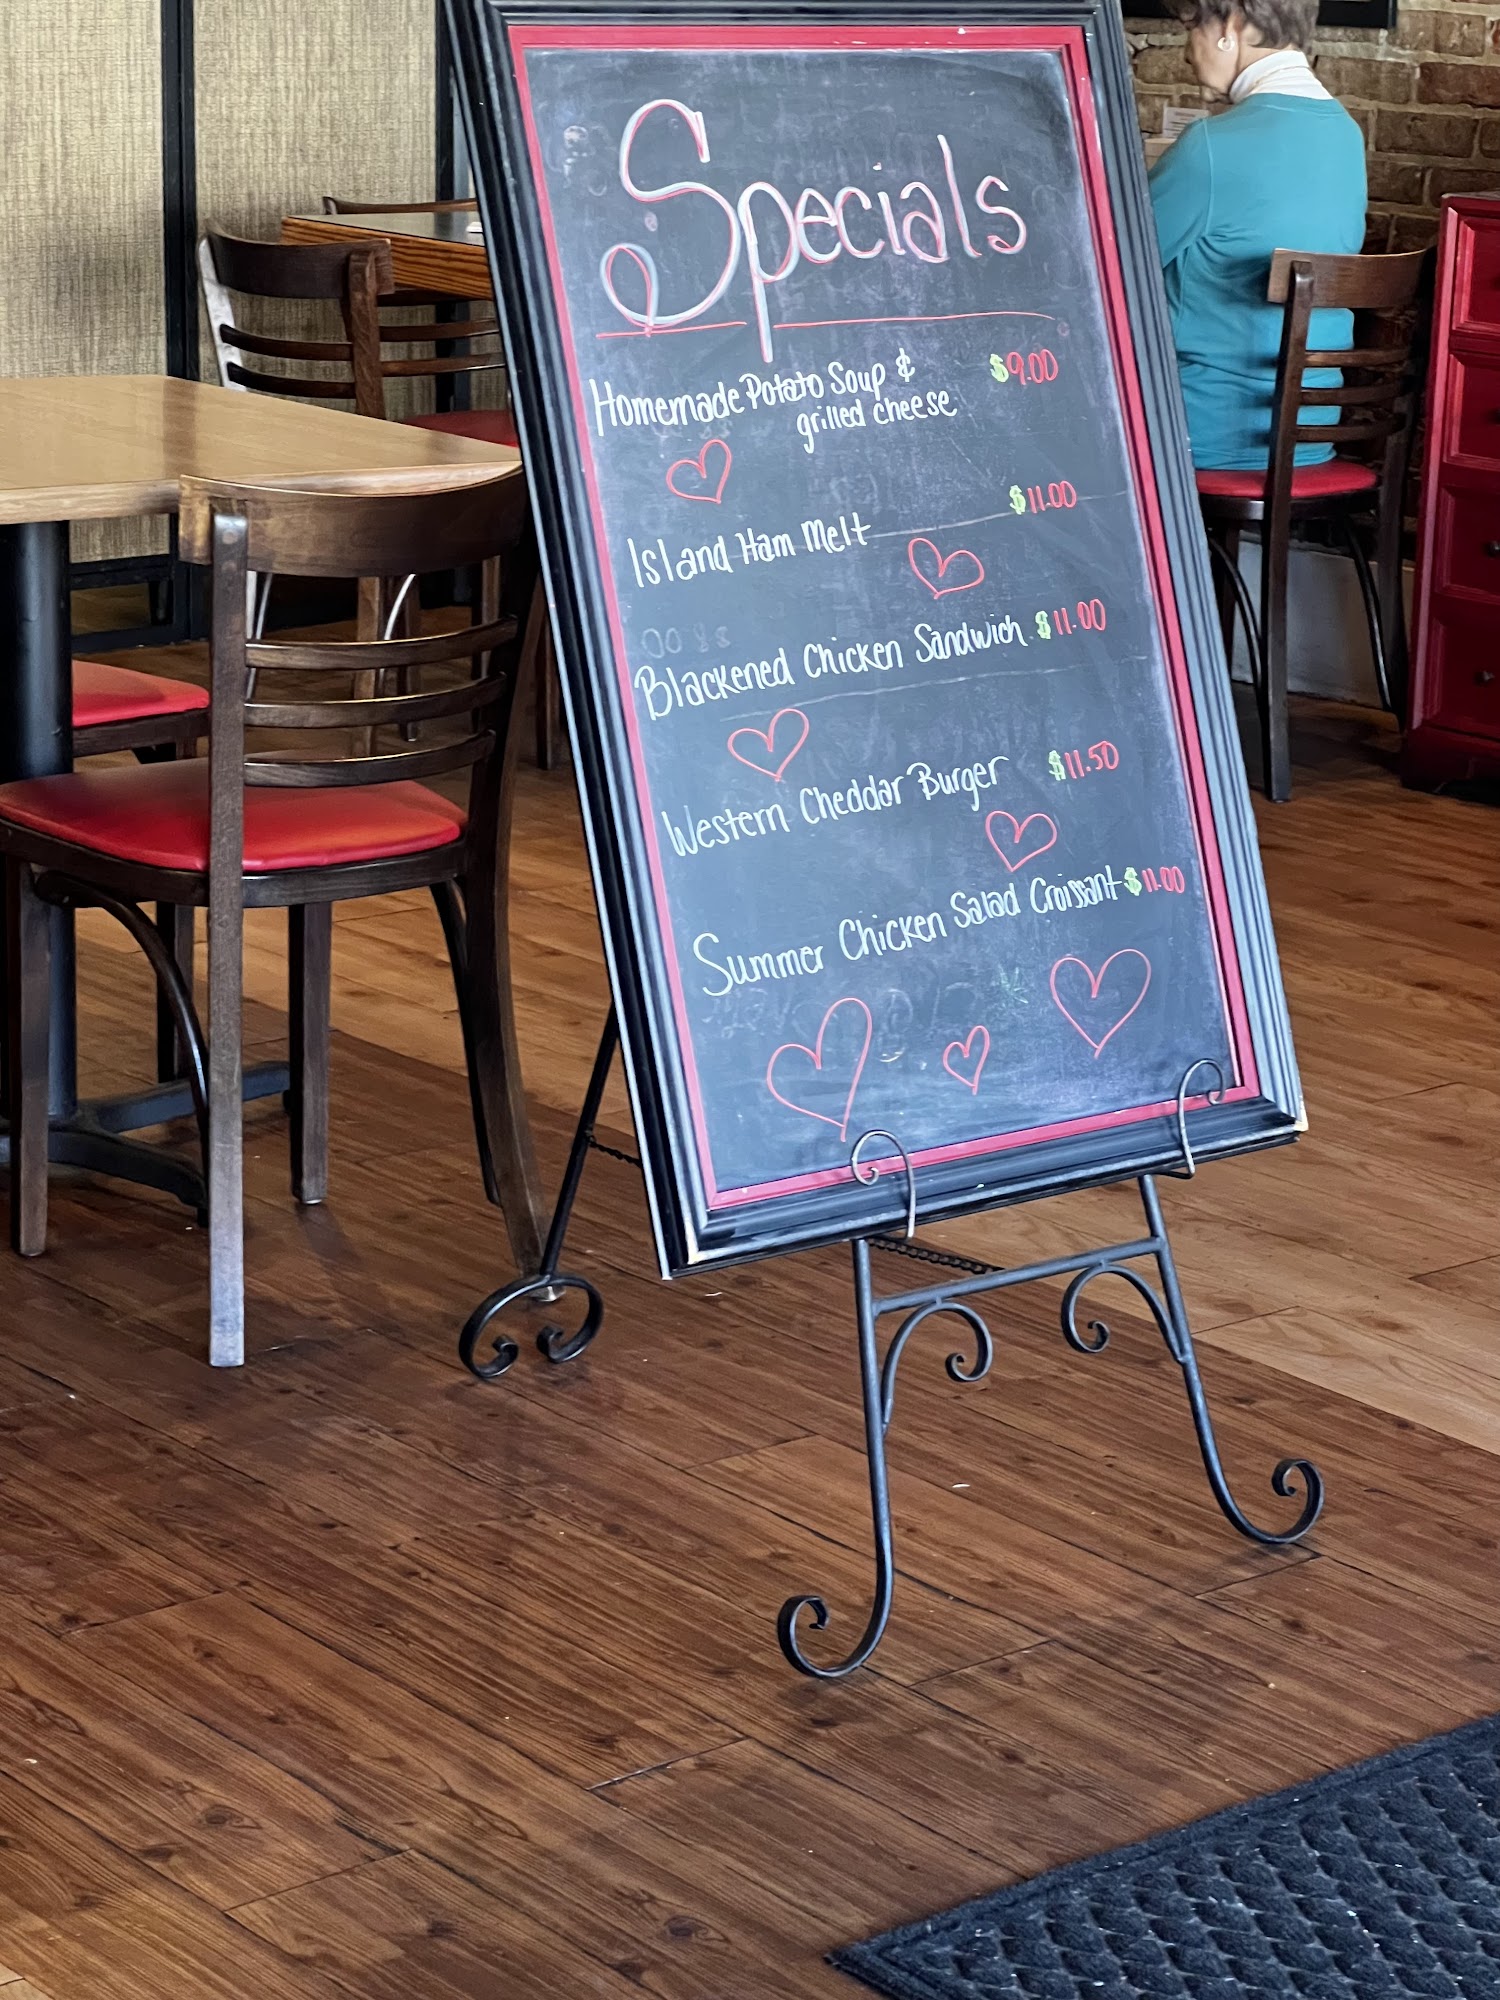 Specials
Homemade Potato Soup & $9.00
grilled cheese
Island Ham Melt $11.00
Blackened Chicken Sandwich $11.00
Western Cheddar Burger $11.50
Summer Chicken Salad Croissant $11.00